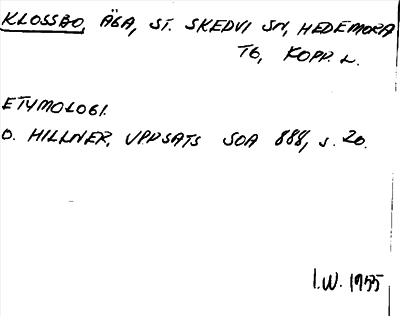 KLOSSBO, ÄGA, ST. SKEDVI SN, HEDEMORA
TG, KOPP. L.
ETYMOLOGI.
O. HILLNER, UPPSATS SOA 888, s. 20.
I.W. 1955